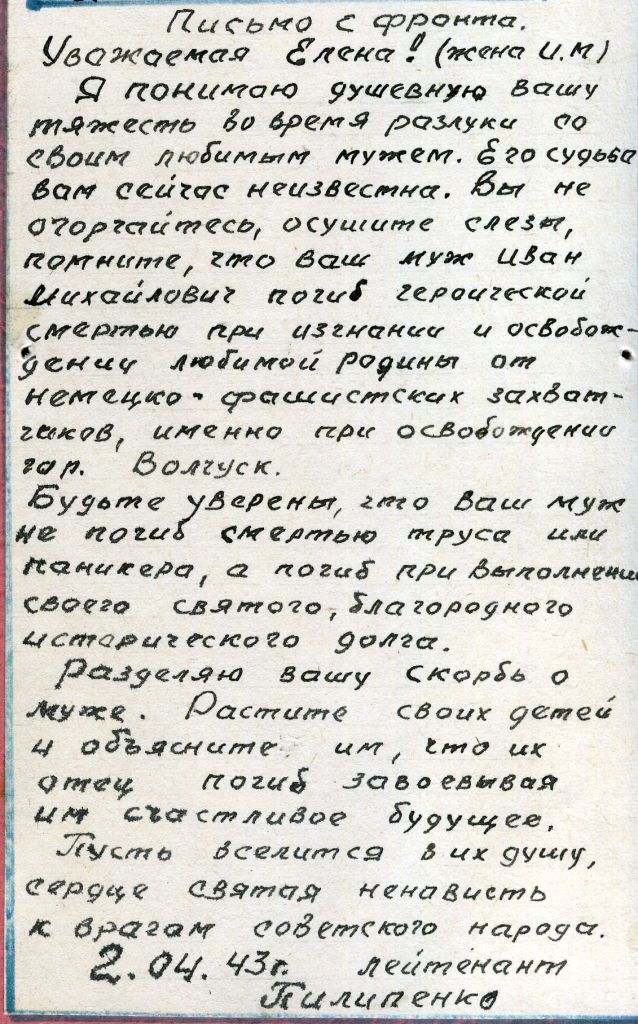 Письмо с фронта.
Уважаемая Елена! (жена И.М)
Я понимаю душевную вашу
тяжесть во время разлуки со
своим любимым мужем. Его судьба
вам сейчас неизвестна. Вы не
огорчайтесь, осушите слезы,
помните, что ваш муж Иван
Михайлович погиб героической
смертью при изгнании и освобож-
дении любимой родины от
немецко-фашистских захват-
чиков, именно при освобождении
гор. Волчуск.
Будьте уверены, что ваш муж
не погиб смертью труса или
паникера, а погиб при выполнении
своего святого, благородного
исторического долга.
Разделяю вашу скорбь о
муже. Растите своих детей
и объясните им, что их
отец погиб завоевывая
им счастливое будущее.
Пусть вселится в их душу,
сердце святая ненависть
к врагам советского народа.
2.04.43г. лейтенант
Пилипенко